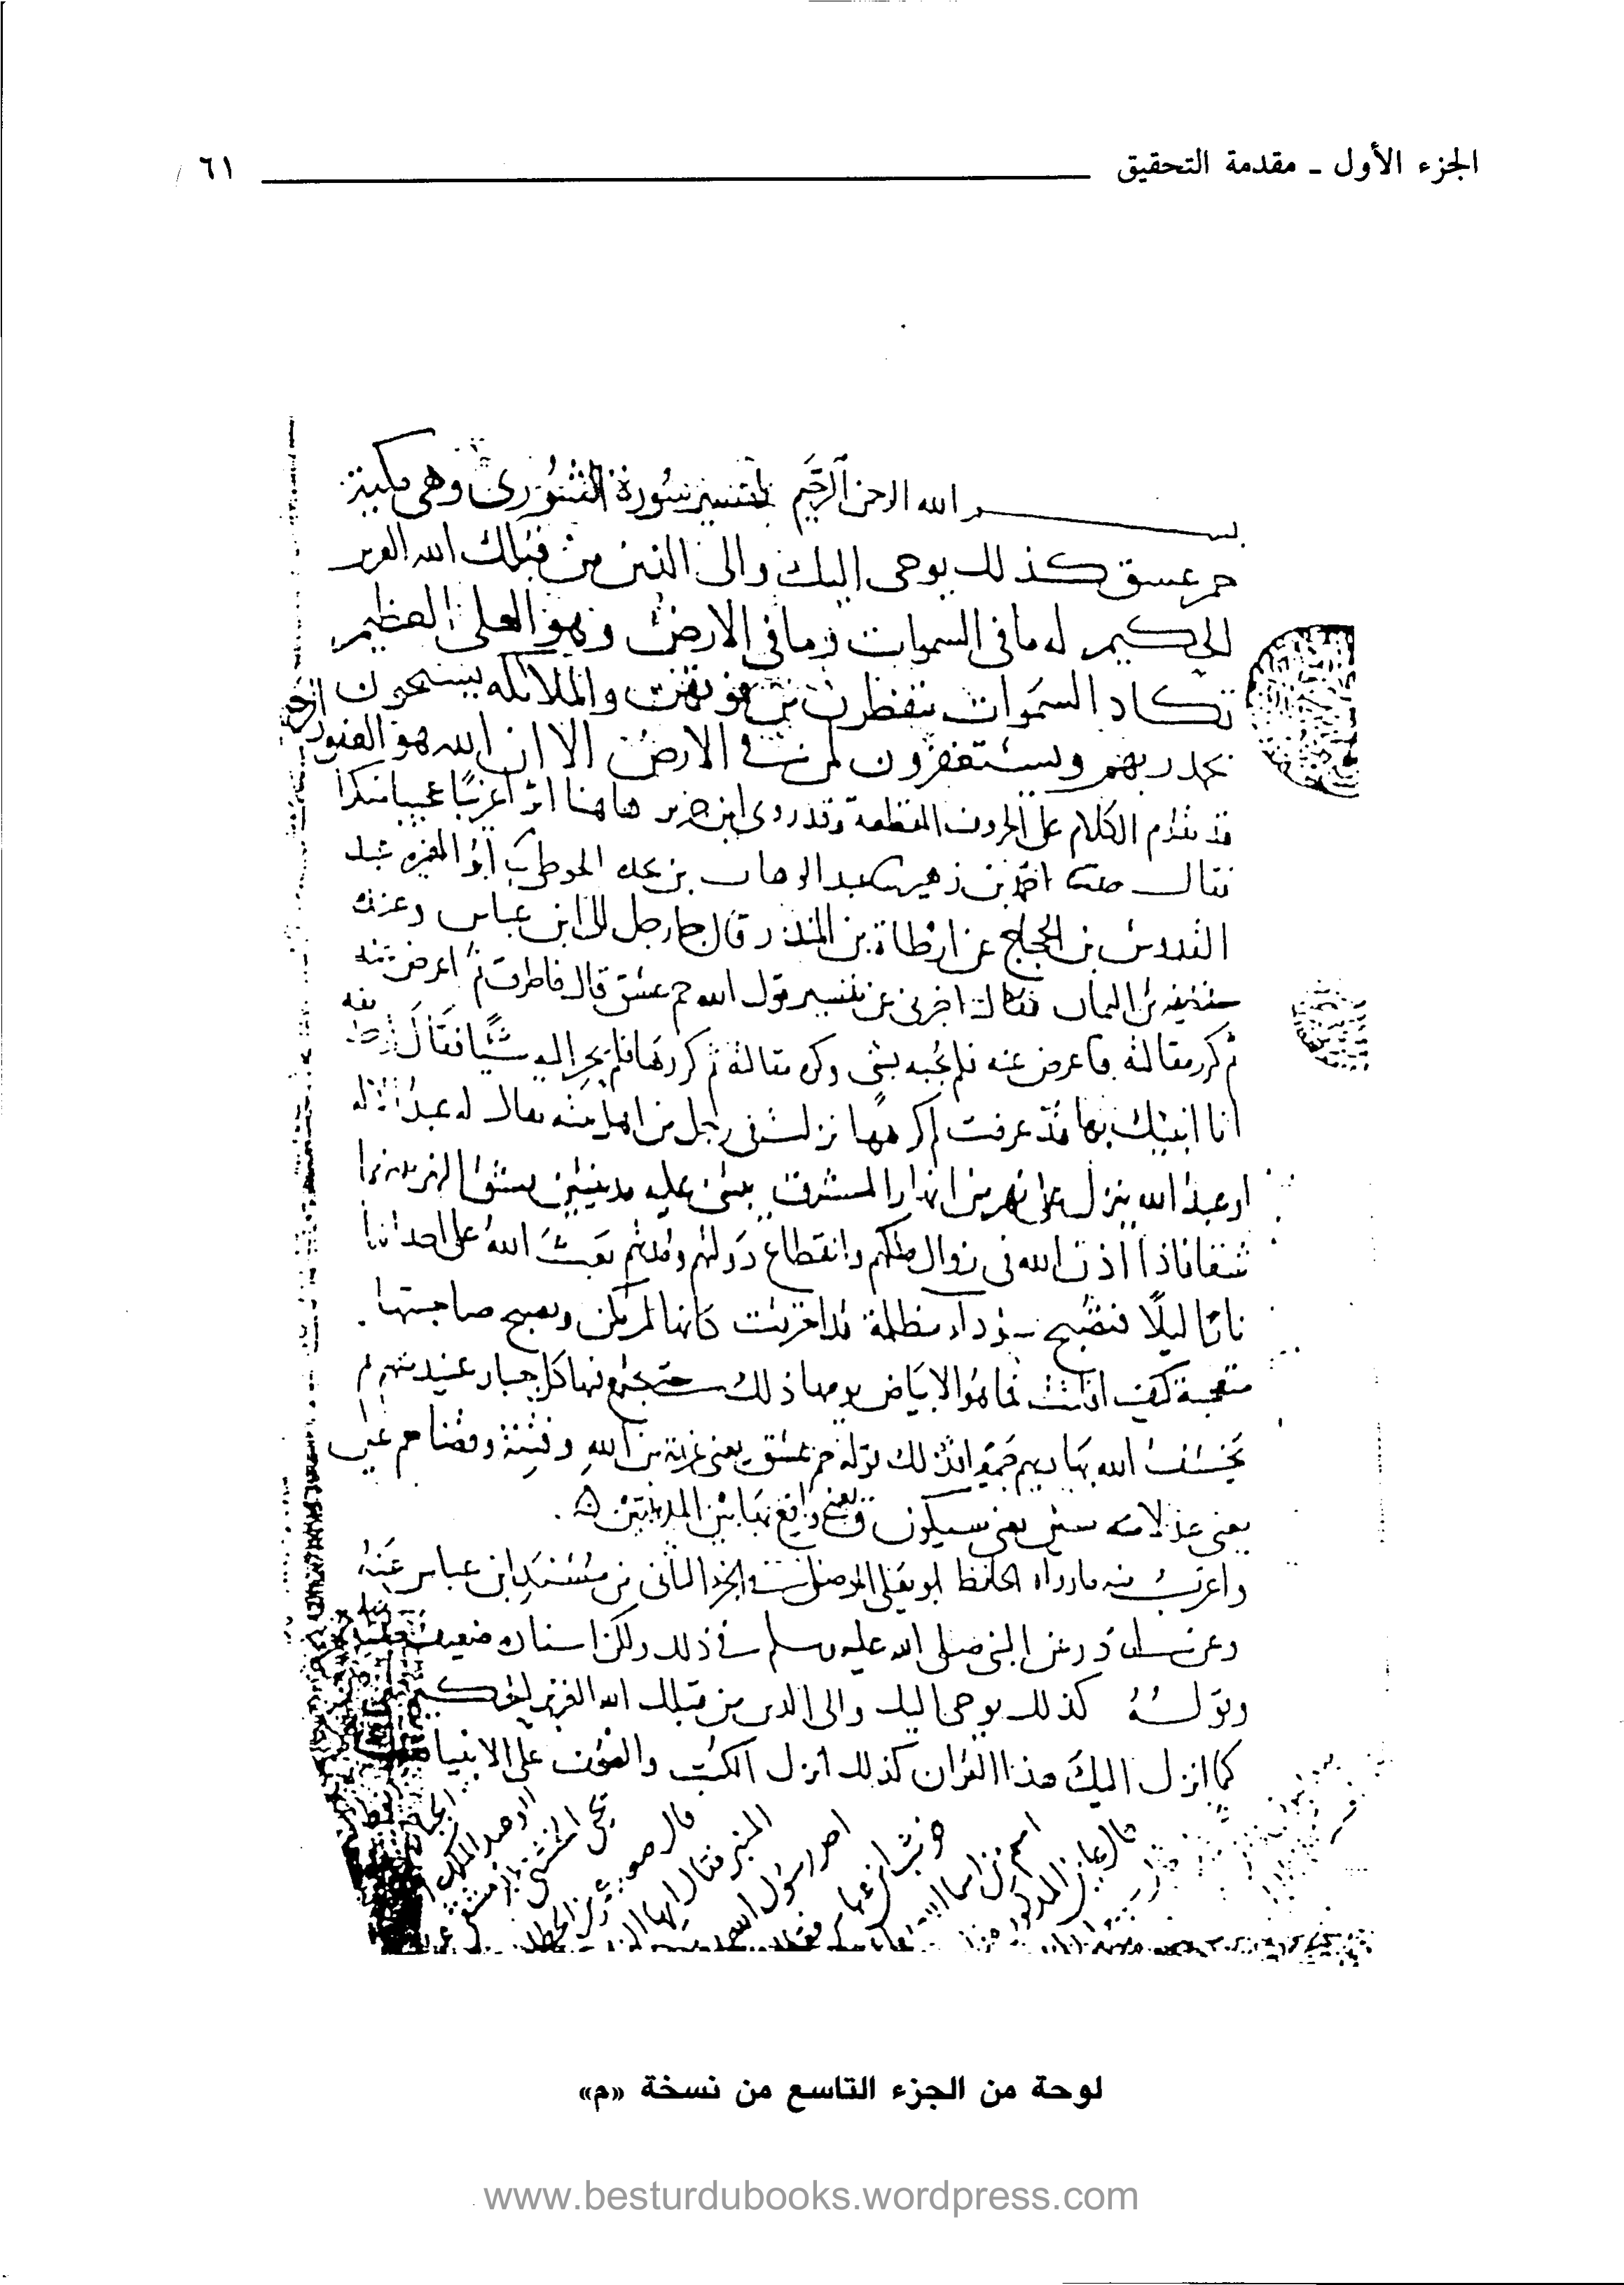 الجزء الأول ـ مقدمة التحقيق ٦١
بسم الله الرحمن الرحيم تفسير سورة الشورى وهي مكية
حم عسق كذلك يوحى اليك والى الذين من قبلك الله العزيز
الحكيم له ما في السموات وما في الارض وهو العلى العظيم
تكاد السموات يتفطرن من فوقهن والملائكه يسبحون
بحمد ربهم ويستغفرون لمن في الارض الا ان الله هو الغفور الرحيم
قد تقدم الكلام على الحروف المقطعة وقد روى ابن جرير هاهنا اثرا غريبا عجيبا منكرا
فقال احمد بن زهير عبد الوهاب بن نجده الحوطي أبو المغيره عبد
القدوس بن الحجاج عن ارطاة بن المنذر قال جا رجل الى ابن عباس وعنده
حذيفه بن اليمان فقال له اخبرني عن تفسير قول الله حم عسق قال فاطرق ثم اعرض عنه
ثم كرر مقالته فاعرض عنه فلم يجبه بشى وكره مقالته ثم كررها فلم يحر اليه شيئا فقال
انا انبيك بها قد عرفت لم كرهها نزلت في رجل من اهل بيته يقال له عبد الاله
او عبد الله ينزل على نهر من انهار المشرق يبنى عليه مدينتين يشق النهر بينهما
شقا فاذا اذن الله في زوال ملكهم وانقطاع دولتهم ومدتهم بعث الله على احداهما
نارا ليلا فتصبح سوداء مظلمة قد احترقت كانها لم تكن وتصبح صاحبتها
متعجبة كيف افلتت فما هو الا بياض يومها ذلك حتى يجتمع فيها كل جبار عنيد منهم ثم
يخسف الله بها وبهم جميعا فذلك قوله حم عسق يعني عزيمة من الله وفتنة وقضا حم عين
يعني عدلا منه سين يعني سيكون ق يعني واقع بهاتين المدينتين
واغرب منه ما رواه الحافظ ابو يعلى الموصلي في الجزء الثاني من مسند ابن عباس عنه
وعن ابي ذر عن النبي صلى الله عليه وسلم في ذلك ولكن اسناده ضعيف
وقوله كذلك يوحى اليك والى الذين من قبلك الله العزيز الحكيم
كما انزل اليك هذا القران كذلك انزل الكتب والصحف على الانبيا
لوحة من الجزء التاسع من نسخة «م»
www.besturdubooks.wordpress.com